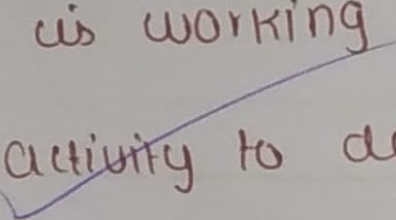 is working
activity to